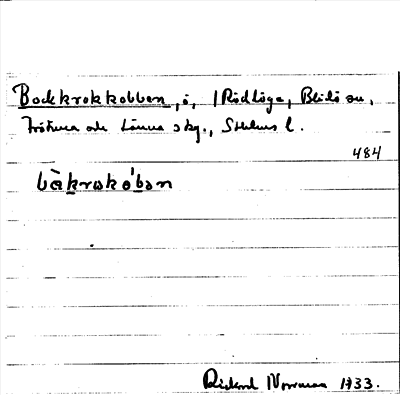 Bodkrokkobben, ö, i Rödlöga, Blidö sn,
Frötuna och Länna skg., Sthlms l.
484
bàkrokóbən
Rickard Norrman 1933.